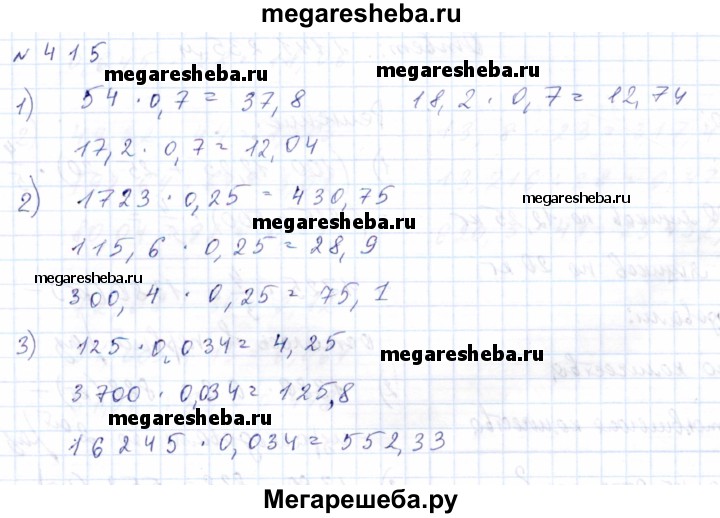 megaresheba.ru
№ 415
megaresheba.ru megaresheba.ru
1) 54 · 0,7 = 37,8 18,2 · 0,7 = 12,74
17,2 · 0,7 = 12,04
2) 1723 · 0,25 = 430,75
megaresheba.ru
115,6 · 0,25 = 28,9
megaresheba.ru megaresheba.ru
300,4 · 0,25 = 75,1
3) 125 · 0,034 = 4,25
megaresheba.ru
3700 · 0,034 = 125,8
megaresheba.ru megaresheba.ru
16245 · 0,034 = 552,33
Мегарешеба.ру